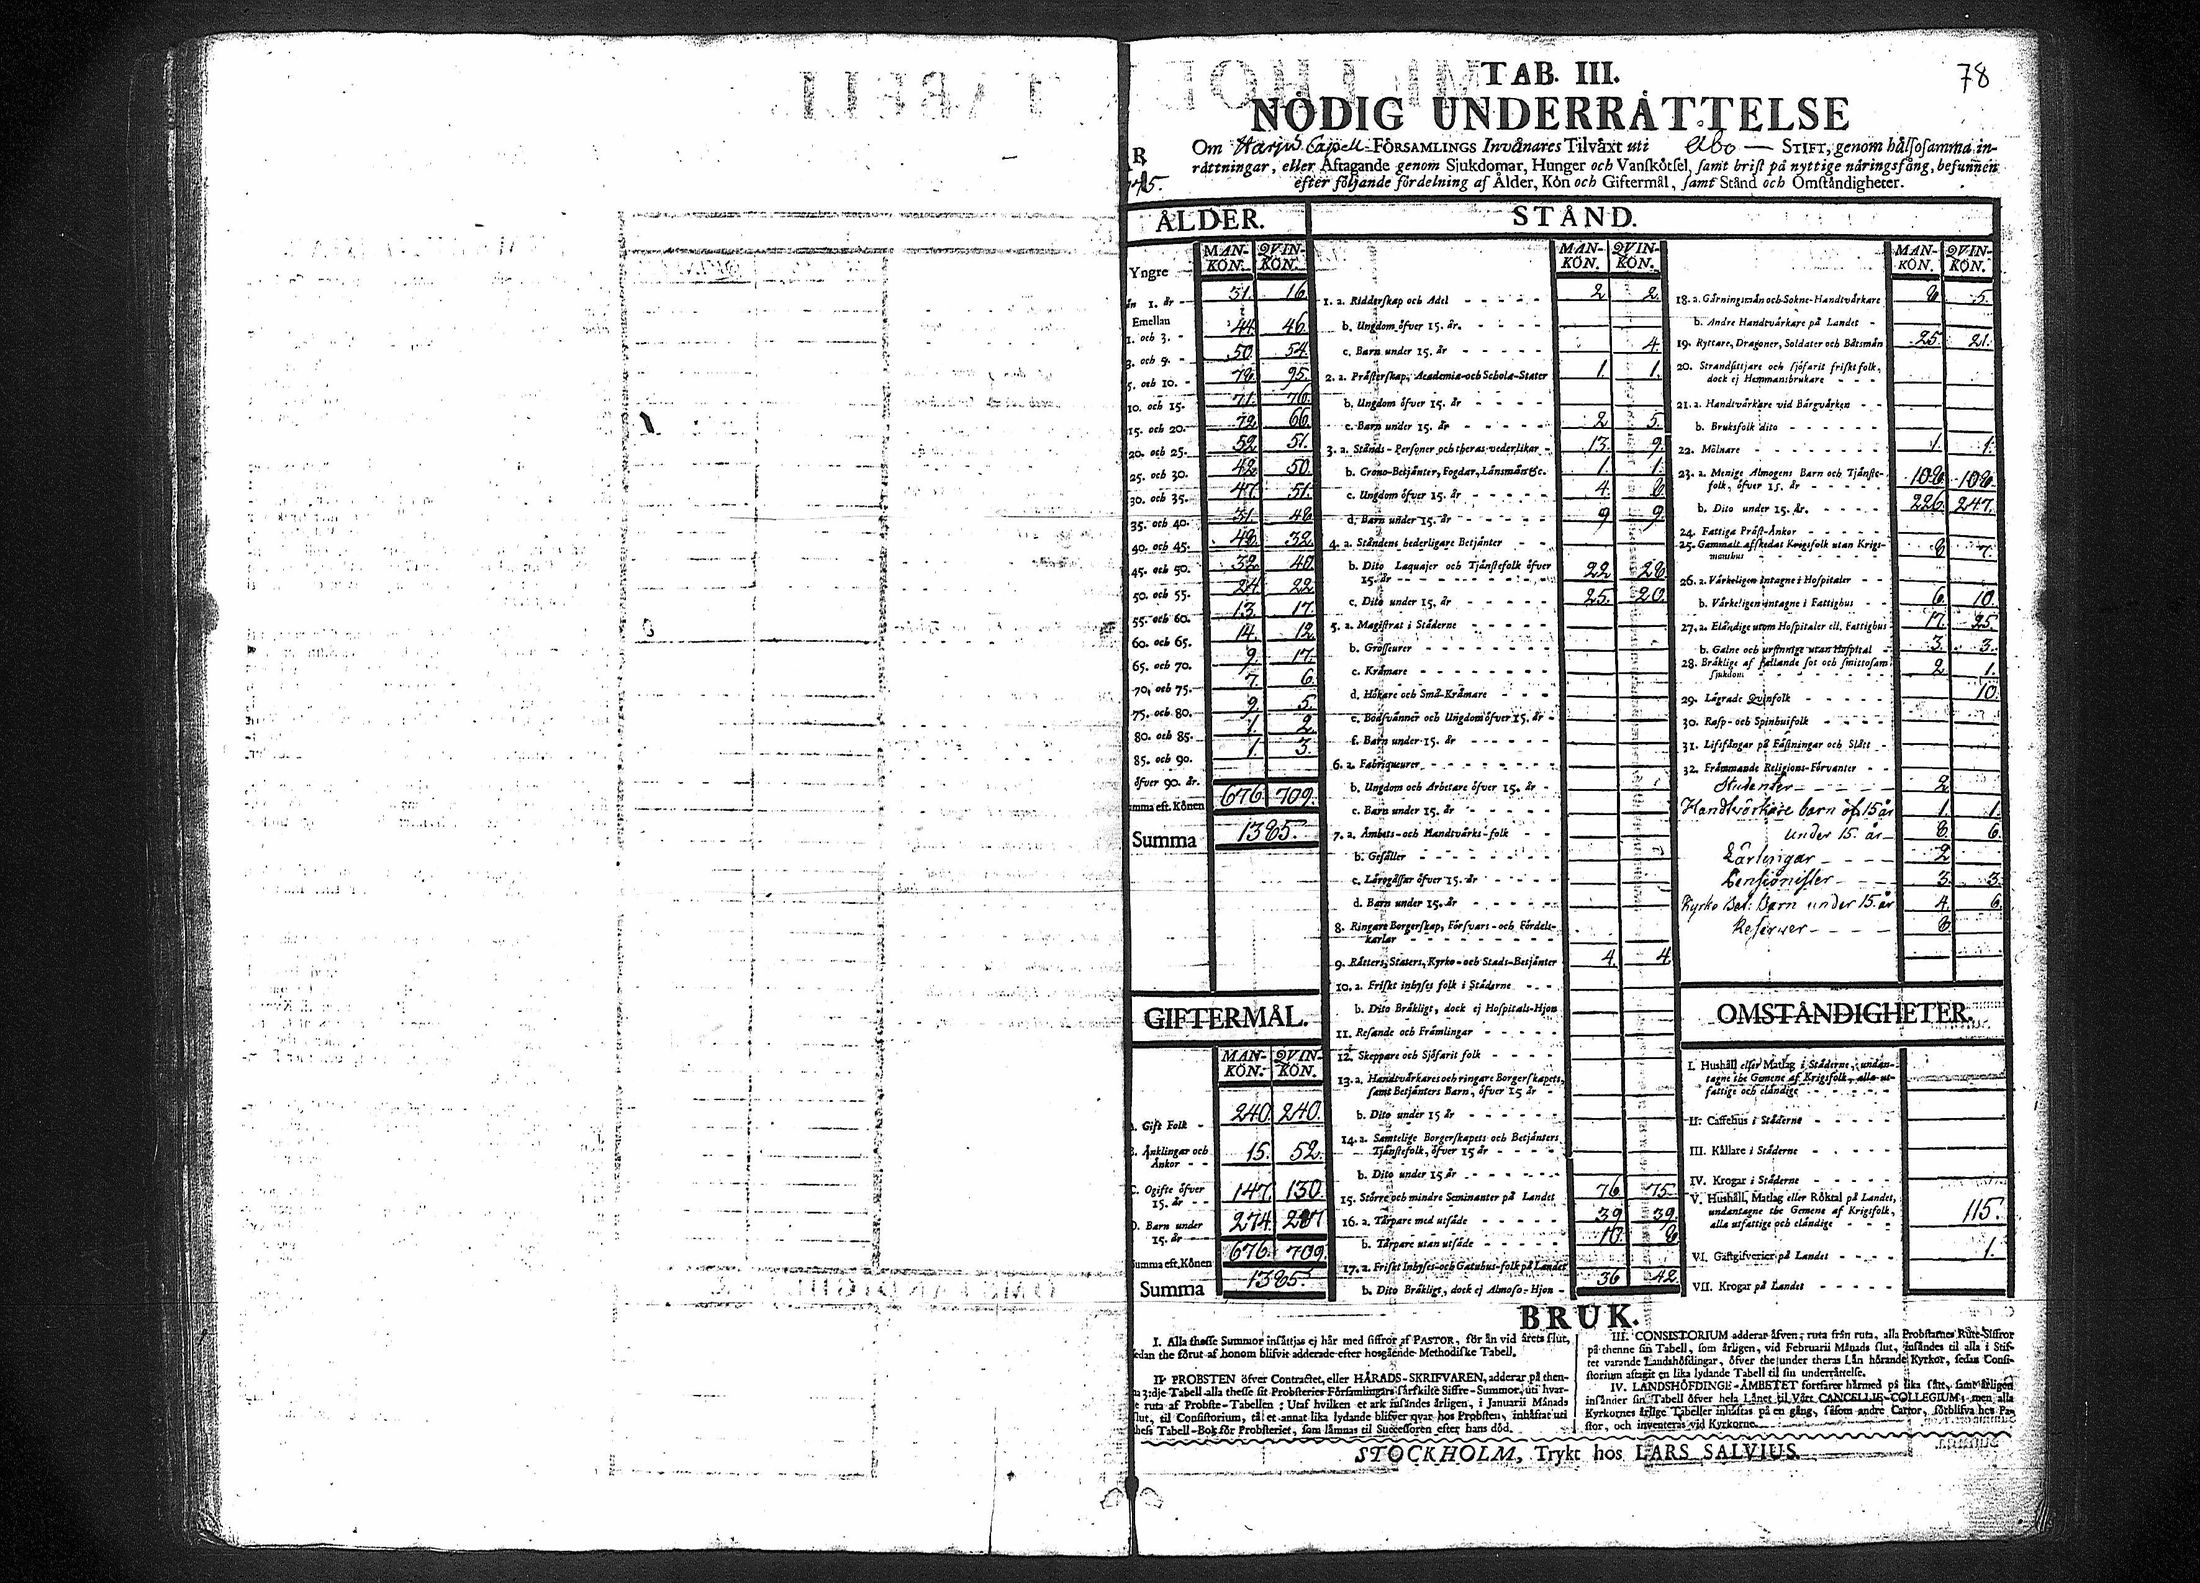 78
TAB. III.
NÖDIG UNDERRÅTTELSE
Om Harju Capell-FÖRSAMLINGS Invånares Tilväxt uti Åbo — STIFT, genom hälsosamma in-
rättningar, eller Aftagande genom Sjukdomar, Hunger och Vanskötsel, samt brist på nyttige näringsfång, befunnen
efter följande fördelning af Ålder, Kön och Giftermål, samt Stånd och Omständigheter.
ÅLDER.
MAN-KÖN. QVIN-KÖN.
Yngre
än 1. år - 31. 16.
Emellan
1. och 3. - 44. 46.
3. och 5. - 50. 54.
5. och 10. - 78. 95.
10. och 15. 71. 76.
15. och 20. 72. 66.
20. och 25. 52. 51.
25. och 30. 42. 50.
30. och 35. 47. 51.
35. och 40. 31. 48.
40. och 45. 48. 32.
45. och 50. 32. 40.
50. och 55. 24. 22.
55. och 60. 13. 17.
60. och 65. 14. 12.
65. och 70. 9. 17.
70. och 75. 7. 6.
75. och 80. 9. 5.
80. och 85. 1. 2.
85. och 90. 1. 3.
öfver 90. år.
mma eft. Könen 676. 709.
Summa 1385.
GIFTERMÅL.
MAN-KÖN. QVIN-KÖN.
Gift Folk - 240. 240.
Änklingar och
Änkor - - 15. 52.
C. Ogifte öfver
15. år - - 147. 130.
D. Barn under
15. år - 274. 287
Summa eft. Könen 676. 709.
Summa 1385.
STÅND.
MAN-KÖN. QVIN-KÖN.
1. a. Ridderskap och Adel 2. 2.
b. Ungdom öfver 15. år.
c. Barn under 15. år 4.
2. a. Prästerskap, Academiæ-och Scholæ-Stater 1. 1.
b. Ungdom öfver 15. år
c. Barn under 15. år 2. 5.
3. a. Stånds-Personer och theras vederlikar 13. 9.
b. Crono-Betjänter, Fogdar, Länsmän &c. 1. 1.
c. Ungdom öfver 15. år 4. 8.
d. Barn under 15. år 9. 9.
4. a. Ståndens hederligare Betjänter
b. Dito Laquajer och Tjänstefolk öfver
15. år 22. 28.
c. Dito under 15. år 25. 20.
5. a. Magistrat i Städerne
b. Grosseurer
c. Krämare
d. Hökare och Små-Krämare
e. Bodsvänner och Ungdom öfver 15. år
f. Barn under 15. år
6. a. Fabriqueurer
b. Ungdom och Arbetare öfver 15. år
c. Barn under 15. år
7. a. Ämbets-och Handtvärks-folk
b. Gesäller
c. Lärogåssar öfver 15. år
d. Barn under 15. år
8. Ringare Borgerskap, Försvars-och Fördels-
karlar
9. Rätters, Staters, Kyrko-och Stads-Betjänter 4. 4.
10. a. Friskt inhyses folk i Städerne
b. Dito Bräkligt, dock ej Hospitals-Hjon
11. Resande och Främlingar
12. Skeppare och Sjöfarit folk
13. a. Handtvärkares och ringare Borgerskapets,
samt Betjänters Barn, öfver 15 år
b. Dito under 15 år
14. a. Samtelige Borgerskapets och Betjänters
Tjänstefolk, öfver 15 år
b. Dito under 15 år
15. Större och mindre Seminanter på Landet 76. 75.
16. a. Tårpare med utsäde 39. 39.
b. Tårpare utan utsäde 10. 8.
17. a. Friskt Inhyses-och Gatuhus-folk på Landet 36. 42.
b. Dito Bräkligt, dock ej Almoso-Hjon
MAN-KÖN. QVIN-KÖN.
18. a. Gärningsmän och Sokne-Handtvärkare 8. 5.
b. Andre Handtvärkare på Landet
19. Ryttare, Dragoner, Soldater och Båtsmän 25. 21.
20. Strandsittjare och sjöfarit friskt folk,
dock ej Hemmansbrukare
21. a. Handtvärkare vid Bärgvärken
b. Bruksfolk dito
22. Mölnare 1. 1.
23. a. Menige Almogens Barn och Tjänste-
folk, öfver 15. år 108. 108.
b. Dito under 15. år. 226. 247.
24. Fattiga Präst-Änkor
25. Gammalt afskedat Krigsfolk utan Krigs-
manshus 8. 7.
26. a. Värkeligen intagne i Hospitaler
b. Värkeligen intagne i Fattighus 6. 10.
27. a. Eländige utom Hospitaler ell. Fattighus 17. 25.
b. Galne och ursinnige utan Hospital 3. 3.
28. Bräklige af fallande sot och smittosam
sjukdom 2. 1.
29. Lägrade Qvinfolk 10.
30. Rasp-och Spinhusfolk
31. Lifsfångar på Fästningar och Slått
32. Främmande Religions-Förvanter
Studenter 2.
Handtvörkare barn öf. 15 år 1. 1.
under 15. år 8. 6.
Lärlingar 2.
Pensionister 3. 3.
Kyrko Bet: Barn under 15. år 4. 6.
Reserver 8.
OMSTÄNDIGHETER.
I. Hushåll eller Matlag i Städerne, undan-
tagne the Gemene af Krigsfolk, alla ut-
fattige och eländige
II. Caffehus i Städerne
III. Källare i Städerne
IV. Krogar i Städerne
V. Hushåll, Matlag eller Röktal på Landet,
undantagne the Gemene af Krigsfolk,
alla utfattige och eländige 115.
VI. Gästgifverier på Landet 1.
VII. Krogar på Landet
BRUK.
I. Alla thesse Summor insättjas ej här med siffror af PASTOR, för än vid årets slut,
sedan the förut af honom blifvit adderade efter hosgående Methodiske Tabell.
II. PROBSTEN öfver Contractet, eller HÄRADS-SKRIFVAREN, adderar på then-
na 3:dje Tabell alla thesse sit Probsteries Församlingars särskilte Siffre-Summor, uti hvar-
e ruta af Probste-Tabellen: Utaf hvilken et ark insändes årligen, i Januarii Månads
slut, til Consistorium, tå et annat lika lydande blifver qvar hos Probsten, inhäftat uti
thess Tabell-Bok för Probsteriet, som lämnas til Successoren efter hans död.
III. CONSISTORIUM adderar äfven, ruta från ruta, alla Probstarnes Rute-Siffror
på thenne sin Tabell, som årligen, vid Februarii Månads slut, insändes til alla i Stif-
tet varande Landshöfdingar, öfver the under theras Län hörande Kyrkor, sedan Consi-
storium aftagit en lika lydande Tabell til sin underrättelse.
IV. LANDSHÖFDINGE-ÄMBETET fortfarer härmed på lika sätt, samt årligen
insänder sin Tabell öfver hela Länet til Vårt CANCELLIE-COLLEGIUM; men alla
Kyrkornes årlige Tabeller inhäftas på en gång, såsom andre Cartor, förblifva hos Pa-
stor, och inventeras vid Kyrkorne.
STOCKHOLM, Trykt hos LARS SALVIUS.